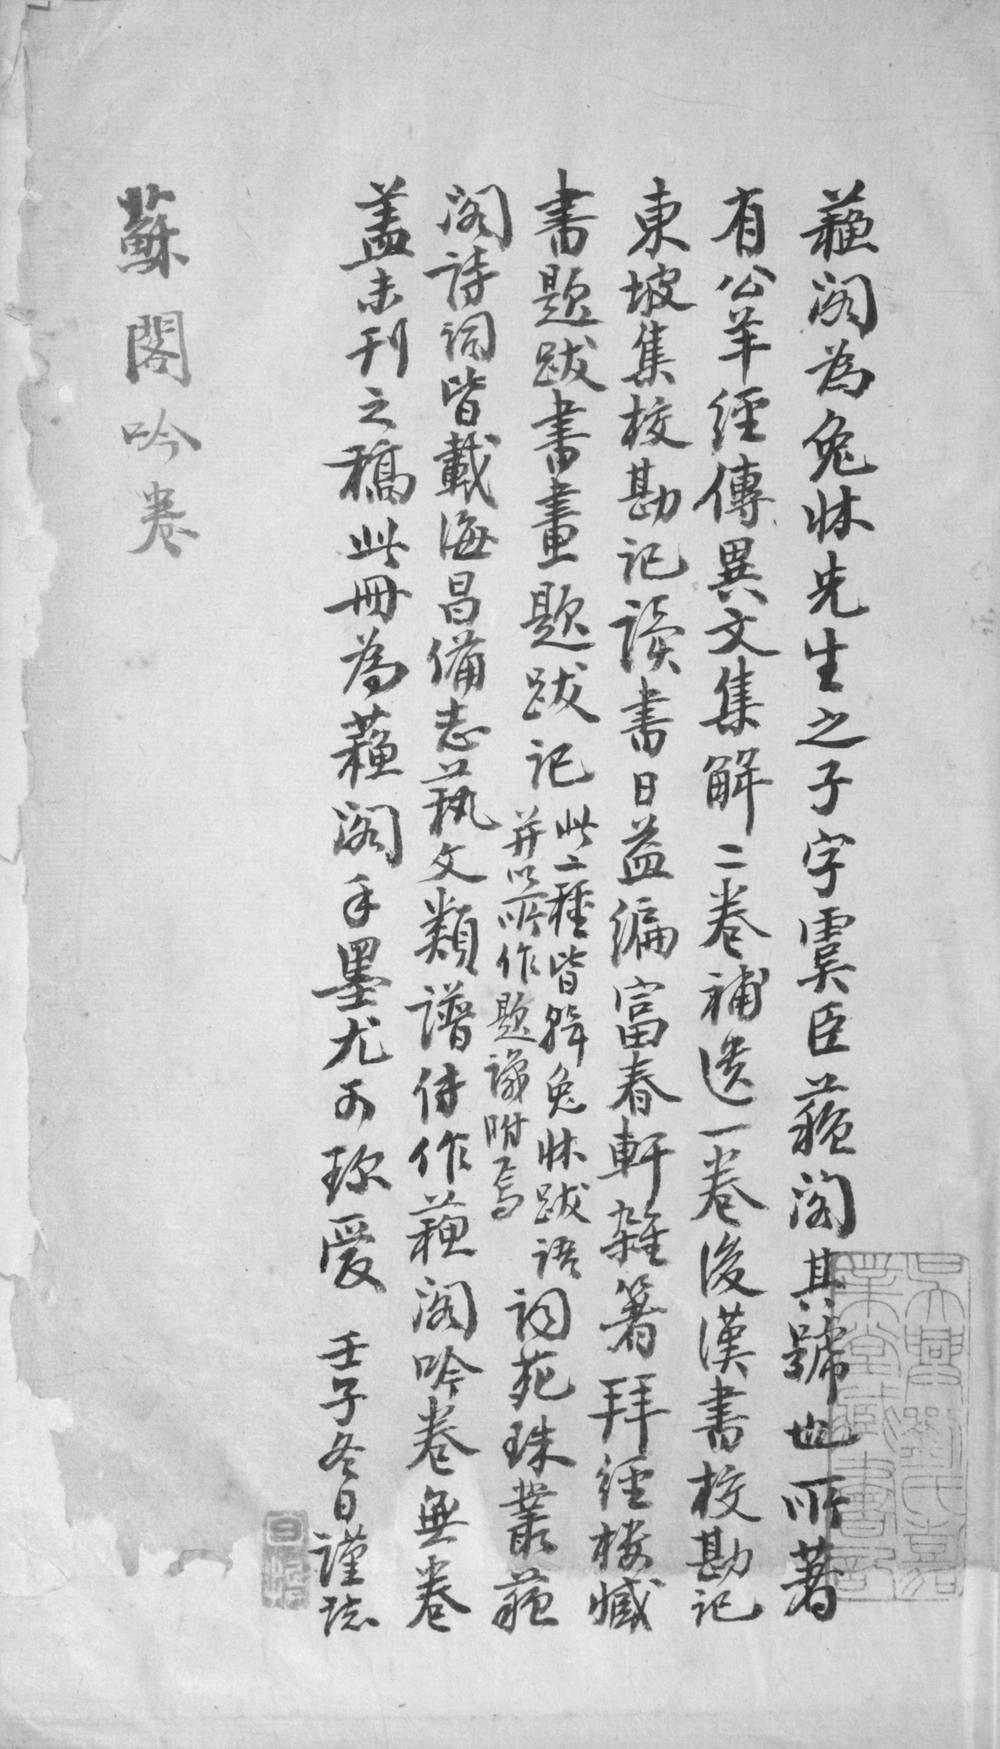 蘓閣為兔牀先生之子字虞臣蘓閣其號也所著
有公羊經傳異文集解二卷補遺一卷後漢書校勘記
東坡集校勘記讀書日益編富春軒雜箸拜經楼臧
書題跋書畫題跋記
此二種皆輯兔牀跋語
并以所作題識附焉
詞苑珠叢蘓
閣詩詞皆載海昌備志蓺文類譜俻作蘓閣吟卷無卷
盖未刊之稿此冊為蘓閣手墨尤可珎愛 壬子冬日謹誌
蘇閣吟卷
吳興劉氏嘉
業堂藏書記